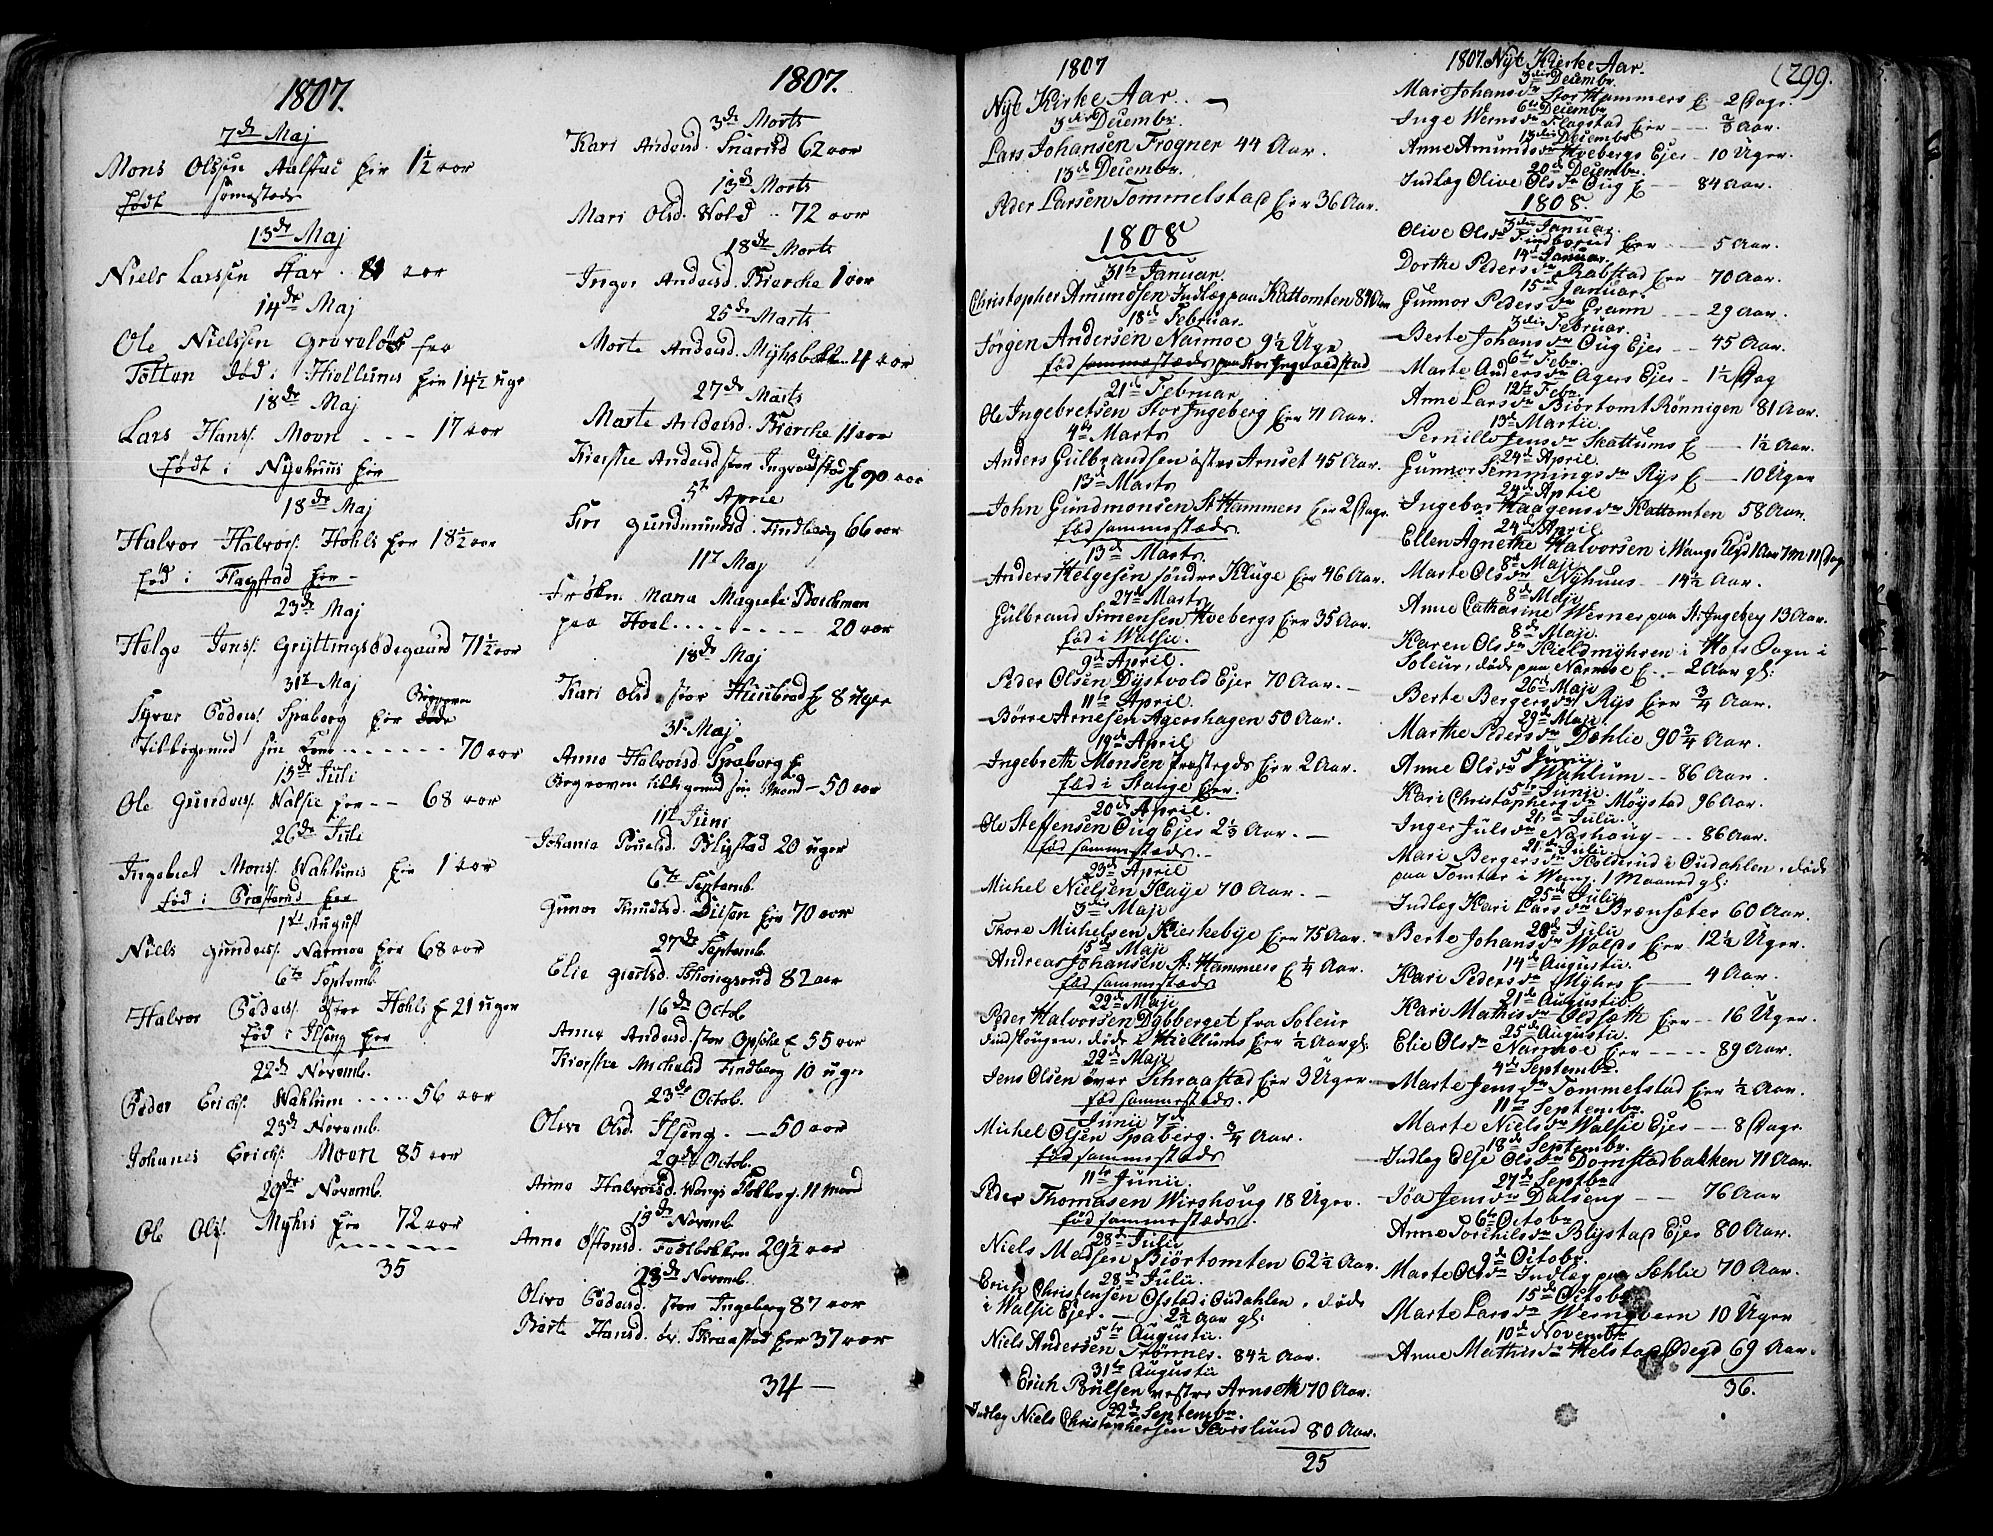 1807.
7de Maj
Mons Olssen Aalstad Eir 1½ aar
født samestæds
13de Maj
Niels Larssen Aar
14de Maj
Ole Nielssen fra
Totten død i Hiellums Eir 14½ uge
18de Maj
Lars Hans: Moen - - - 17 aar
født i Nyehuus Eir
18de Maj
Halvor Halvors: Hohls Eir 18½ aar
fød i Flagstad Eir -
23de Maj
Helge Jens: Gryttingsødegaard 71½ aar
31te Maj
Peders: Spaberg Eir
Tilligemed sin Kone - - - - - - - 70 aar
13de Juli
Ole Gunders: Walsie Eir - - 68 aar
26de Juli
Ingebret Mons: Wahlums Eir 1 aar
fød i Præsterud Eir
1te August
Niels Gunders: Narmoe Eir 68 aar
6te Septemb.
Halvor Peders: Hohls E 21 uger
fød i Ilseng Eir
22de Novemb.
Peder Erichs: Wahlum ..... 56 aar
23de Novemb.
Johanes Erichs: Moen 85 aar
29de Novemb.
Ole Ols: Myhrs Eir 72 aar
35
1807.
3de Marts
Kari Andersd. Snarud 62 aar
13de Marts
Mari Olsd. Wold .. 72 aar
18de Marts
Inger Andersd. Bierche 1 aar
25de Marts
Marte Andersd. Myhrsbakken 4 aar
27de Marts
Marte Andersd. Bierche 11 aar
Kierstie Andersd stor Ingvaldstad E 90 aar
5te Aprie
Siri Gundmundsd. Findberg 66 aar
11te Maj
Frøkn. Maria Magrete Borchman
paa Hoel......... 20 aar
18de Maj
Kari Olsd. stor E 8 uger
31te Maj
Anne Halvorsd Spaberg E
Begraven tilligemed sin Mand - 50 aar
11te Juni
Johanna Povelsd. Bligstad 20 uger
6te Septemb.
Gunor Knudsd. Dilsen Eir 70 aar
27de Septemb.
Elie 82 aar
16de Octob
Anne Andersd. stor Opsche E 55 aar
Kierstie Michelsd Findberg 10 uger
23de Octob.
Olive Olsd. Ilseng. - 50 aar
29de Octob.
Anne Halvorsd. Wangs 11 maned
15de Novemb
Anne Østensd. 29½ aar
28de Novemb.
Olive Pedersd. stor Ingeberg 87 aar
Berte Hansd. øv. Skraastad Eir 37 aar
34 -
1807
Nyt Kirke Aar.
3die Decembr.
Lars Johansen Frogner 44 Aar.
13de Decembr.
Peder Larsen Tommelstad Eir 36 Aar.
1808
31te Januar.
Christopher Amundsen Indlæg paa Kattomten 84 Aar
18de Februar.
Jørgen Andersen Narmoe 9½ Uge
fød sammestæds paa Stor Ingvoldstad
21de Februar.
Ole Ingebretsen Stor Ingeberg Eir 71 Aar.
4de Marts
Anders Gulbrandsen østre Arnset 45 Aar.
13de Marts
John Gundmonsen St Hammers Eir 2 Dage.
fød sammestæds.
13de Marts.
Anders Helgesen søndre Kluge Eir 46 Aar.
27de Marts
Gulbrand Simensen Hvebergs Eir 35 Aar.
fød i Walsie.
9de April.
Peder Olsen Dystvold Ejer 70 Aar. -
11te April.
Børre Arnesen Agershagen 50 Aar.
19de April
Ingebreth Monsen Præstegds Eir 2 Aar.
fød i Stange Eir.
20de April.
Ole Steffensen Oug Ejer 2⅓ Aar. -
fød sammestæds. -
23de April
Michel Nielsen Haye 70 Aar. -
3die Maji
Thore Michelsen Kierkebye Eir 75 Aar.
15de Maji
Andreas Johansen St: Hammers E ¼ Aar.
fød sammestæds
22de Maji
Peder Halvorsen Dybberget fra Soleur
Findskougen, døde i Hiellums Eir ½ Aar gl:
22de Maji
Jens Olsen över Schraastad Eir 3 Uger.
fød sammestæds.
Junii 7de
Michel Olsen Spaberg. ¾ Aar.
fød sammestæds
11te Junii.
Peder Thomasen Wirshoug 18 Uger.
fød sammestæds.
28de Julii
Niels Madsen Biörtomten 62½ Aar.
28de Julii.
Erich Christensen Ofstad i Oudahlen, døde
i Walsie Ejer. - 2½ Aar gl:
5te Augustii.
Niels Andersen Trønnes. 84½ Aar.
31te Augustii
Erich Poulsen vestre Arnseth 70 Aar.
22de Septembr.
Indlæg Niels Christophersen Horslund 80 Aar.
25
1807. Nyt Kierke Aar.
(299.
3die Decembr.
Mari Johansdr Stor Hammers E - 2 Dage.
6te Decembr
Inge Wernsdr Flagstad Eier - - - ⅔ Aar.
13de Decembr
Anne Amundsdr Hvebergs Ejer - 10 Uger.
20de Decembr.
Indlæg Olive Olsdr Oug E - - 84 Aar.
1808.
3die Januar.
Olive Olsdr Findborud Eier - - - 5 Aar.
14de Januar.
Dorthe Pedersdr Rabstad Eer - - 70 Aar.
15de Januar.
Gunnor Pedersdr Grann - - - 29 Aar.
3die Februar.
Berte Johansdr Oug Ejer - - 45 Aar.
6te Febr.
Marte Andersdr Agers Ejer - 1½ Dag
12te Febr
Anne Larsdr Biörtomt Rönnigen 81 Aar.
13de Martii
Pernille Jensdr Skattums E - 1½ Aar.
24de April.
Gunnor Femmingsdr Rys E - 10 Uger
24de April
Ingebor Haagensdr Kattomten 58 Aar.
24de April.
Ellen Agnethe Halvorsen i Wangs 1 Aar 7 M 11 Dage
8de Maji
Marte Olsdr Nyhuus - - 14½ Aar.
8de Maji
Anne Catharine Wernes paa St: Ingeberg 13 Aar.
8de Maji.
Karen Olsdr Kieldmyhren i Hofs Sogn i
Soleur, døde paa Narmoe E. - 2 Aar gl:
26de Maji
Berte Bergersdr Rys Eier ¾ Aar.
29de Maji
Marthe Pedersdr Dahlie 90¾ Aar.
5te Junii.
Anne Olsdr Wahlum - - 86 Aar.
5te Junii.
Kari Christophersdr Möystad 96 Aar.
21de Julii.
Inger Julsdr Narhoug - - - 86 Aar.
21de Julii.
Mari Bergersdr Holderud i Oudahlen, døde
paa Tomter i Wang. 1 Maaned gl:
25de Julii
Indlæg Kari Larsdr Brænsæter 60 Aar.
28de Julii
Berte Johansdr Walss Eier 12½ Uger.
14de Augustii.
Kari Pedersdr Myhrs E - - 4 Aar.
21de Augustii
Kari Mathisdr Oldsæth Eier - - 16 Uger.
25de Augustii.
Elie Olsdr Narmoe Eier - - - - 89 Aar.
4de Septembr.
Marte Jensdr Tommelstad Eier ½ Aar.
11te Septembr
Marte Nielsdr Walsie Ejer - - 8 Dage
18de Septembr.
Indlæg Else Olsdr Domstadbakken 71 Aar.
27de Septbr
Siøa Jensdr Dalseng - - 76 Aar
6te Octobr
Anne Torchilsdr Blystad Ejer 80 Aar.
9de Octobr.
Marte Olsdr Indlæg paa Sæhlie 70 Aar.
15de Octobr.
Marte Larsdr Wernqvern 10 Uger
10de Novembr
Anne Mathisdr Helstad Ødegd 69 Aar.
36.